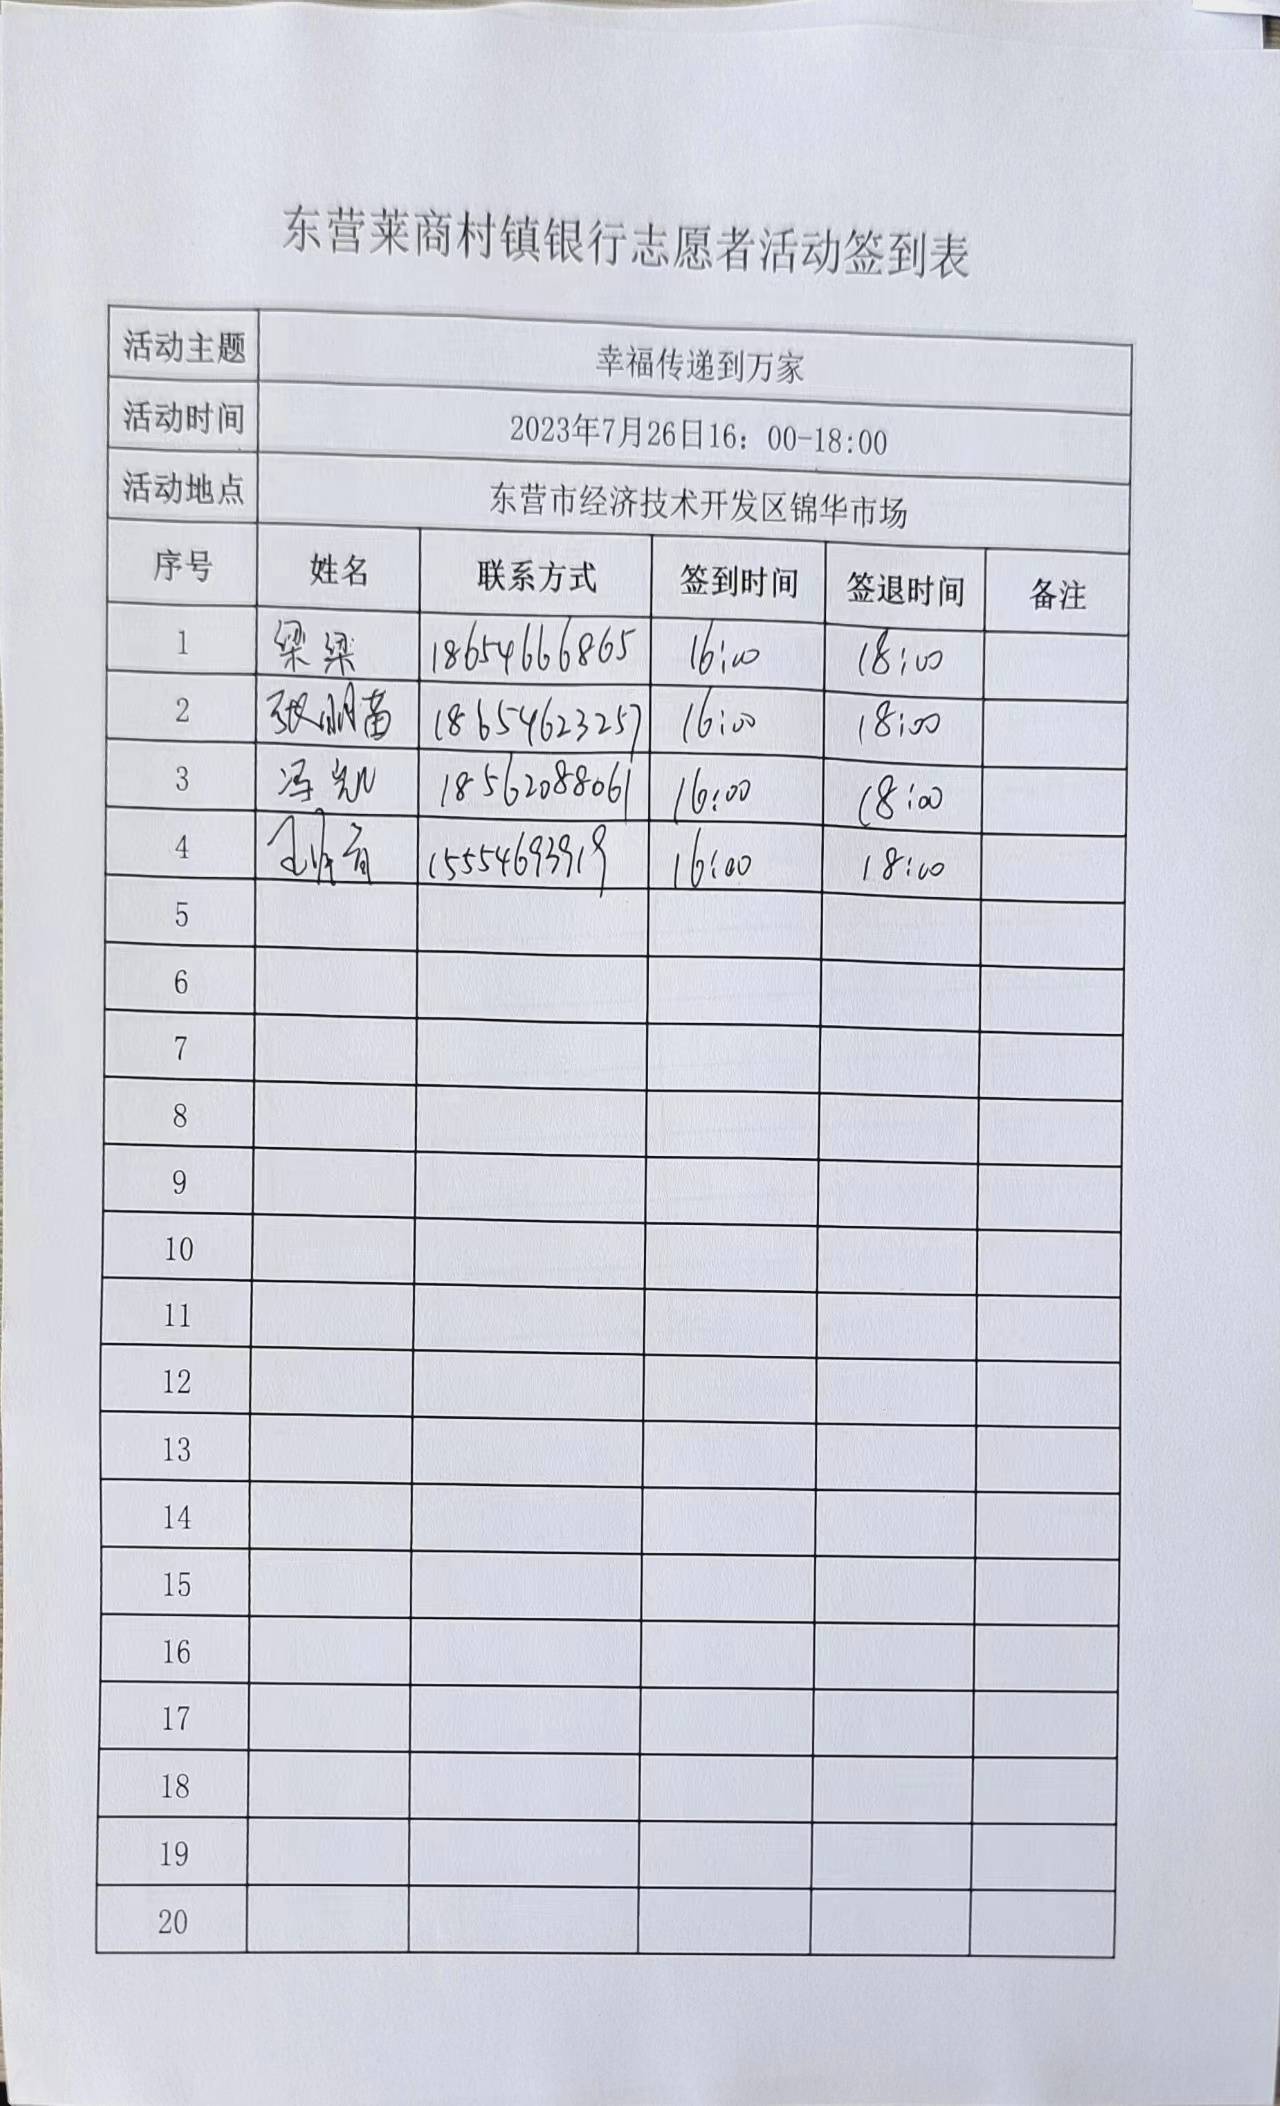 东营莱商村镇银行志愿者活动签到表
活动主题 幸福传递到万家
活动时间 2023年7月26日16：00-18:00
活动地点 东营市经济技术开发区锦华市场
序号 姓名 联系方式 签到时间 签退时间 备注
1 梁梁 18654666865 16:00 18:00
2 张明苗 18654623257 16:00 18:00
3 冯凯 18562088061 16:00 18:00
4 15554693919 16:00 18:00
5
6
7
8
9
10
11
12
13
14
15
16
17
18
19
20